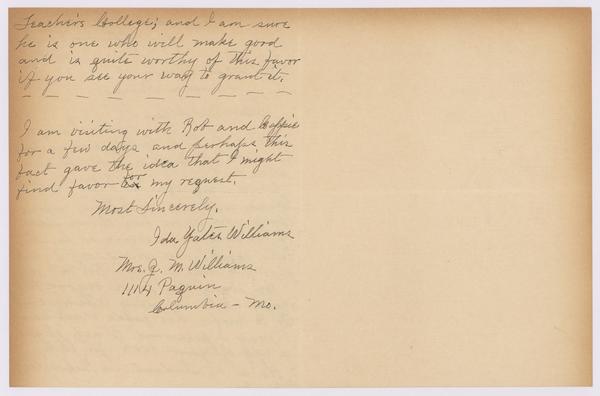 Teachers College; and I am sure
he is one who will make good
and is quite worthy of this favor
if you see your way to grant it.
— — — — — — — — —
I am visiting with Rob and
for a few days and perhaps this
fact gave the idea that I might
find favor for my request.
Most Sincerely,
Ida Yates Williams
Mrs. J. M. Williams
1114 Paquin
Columbia - Mo.